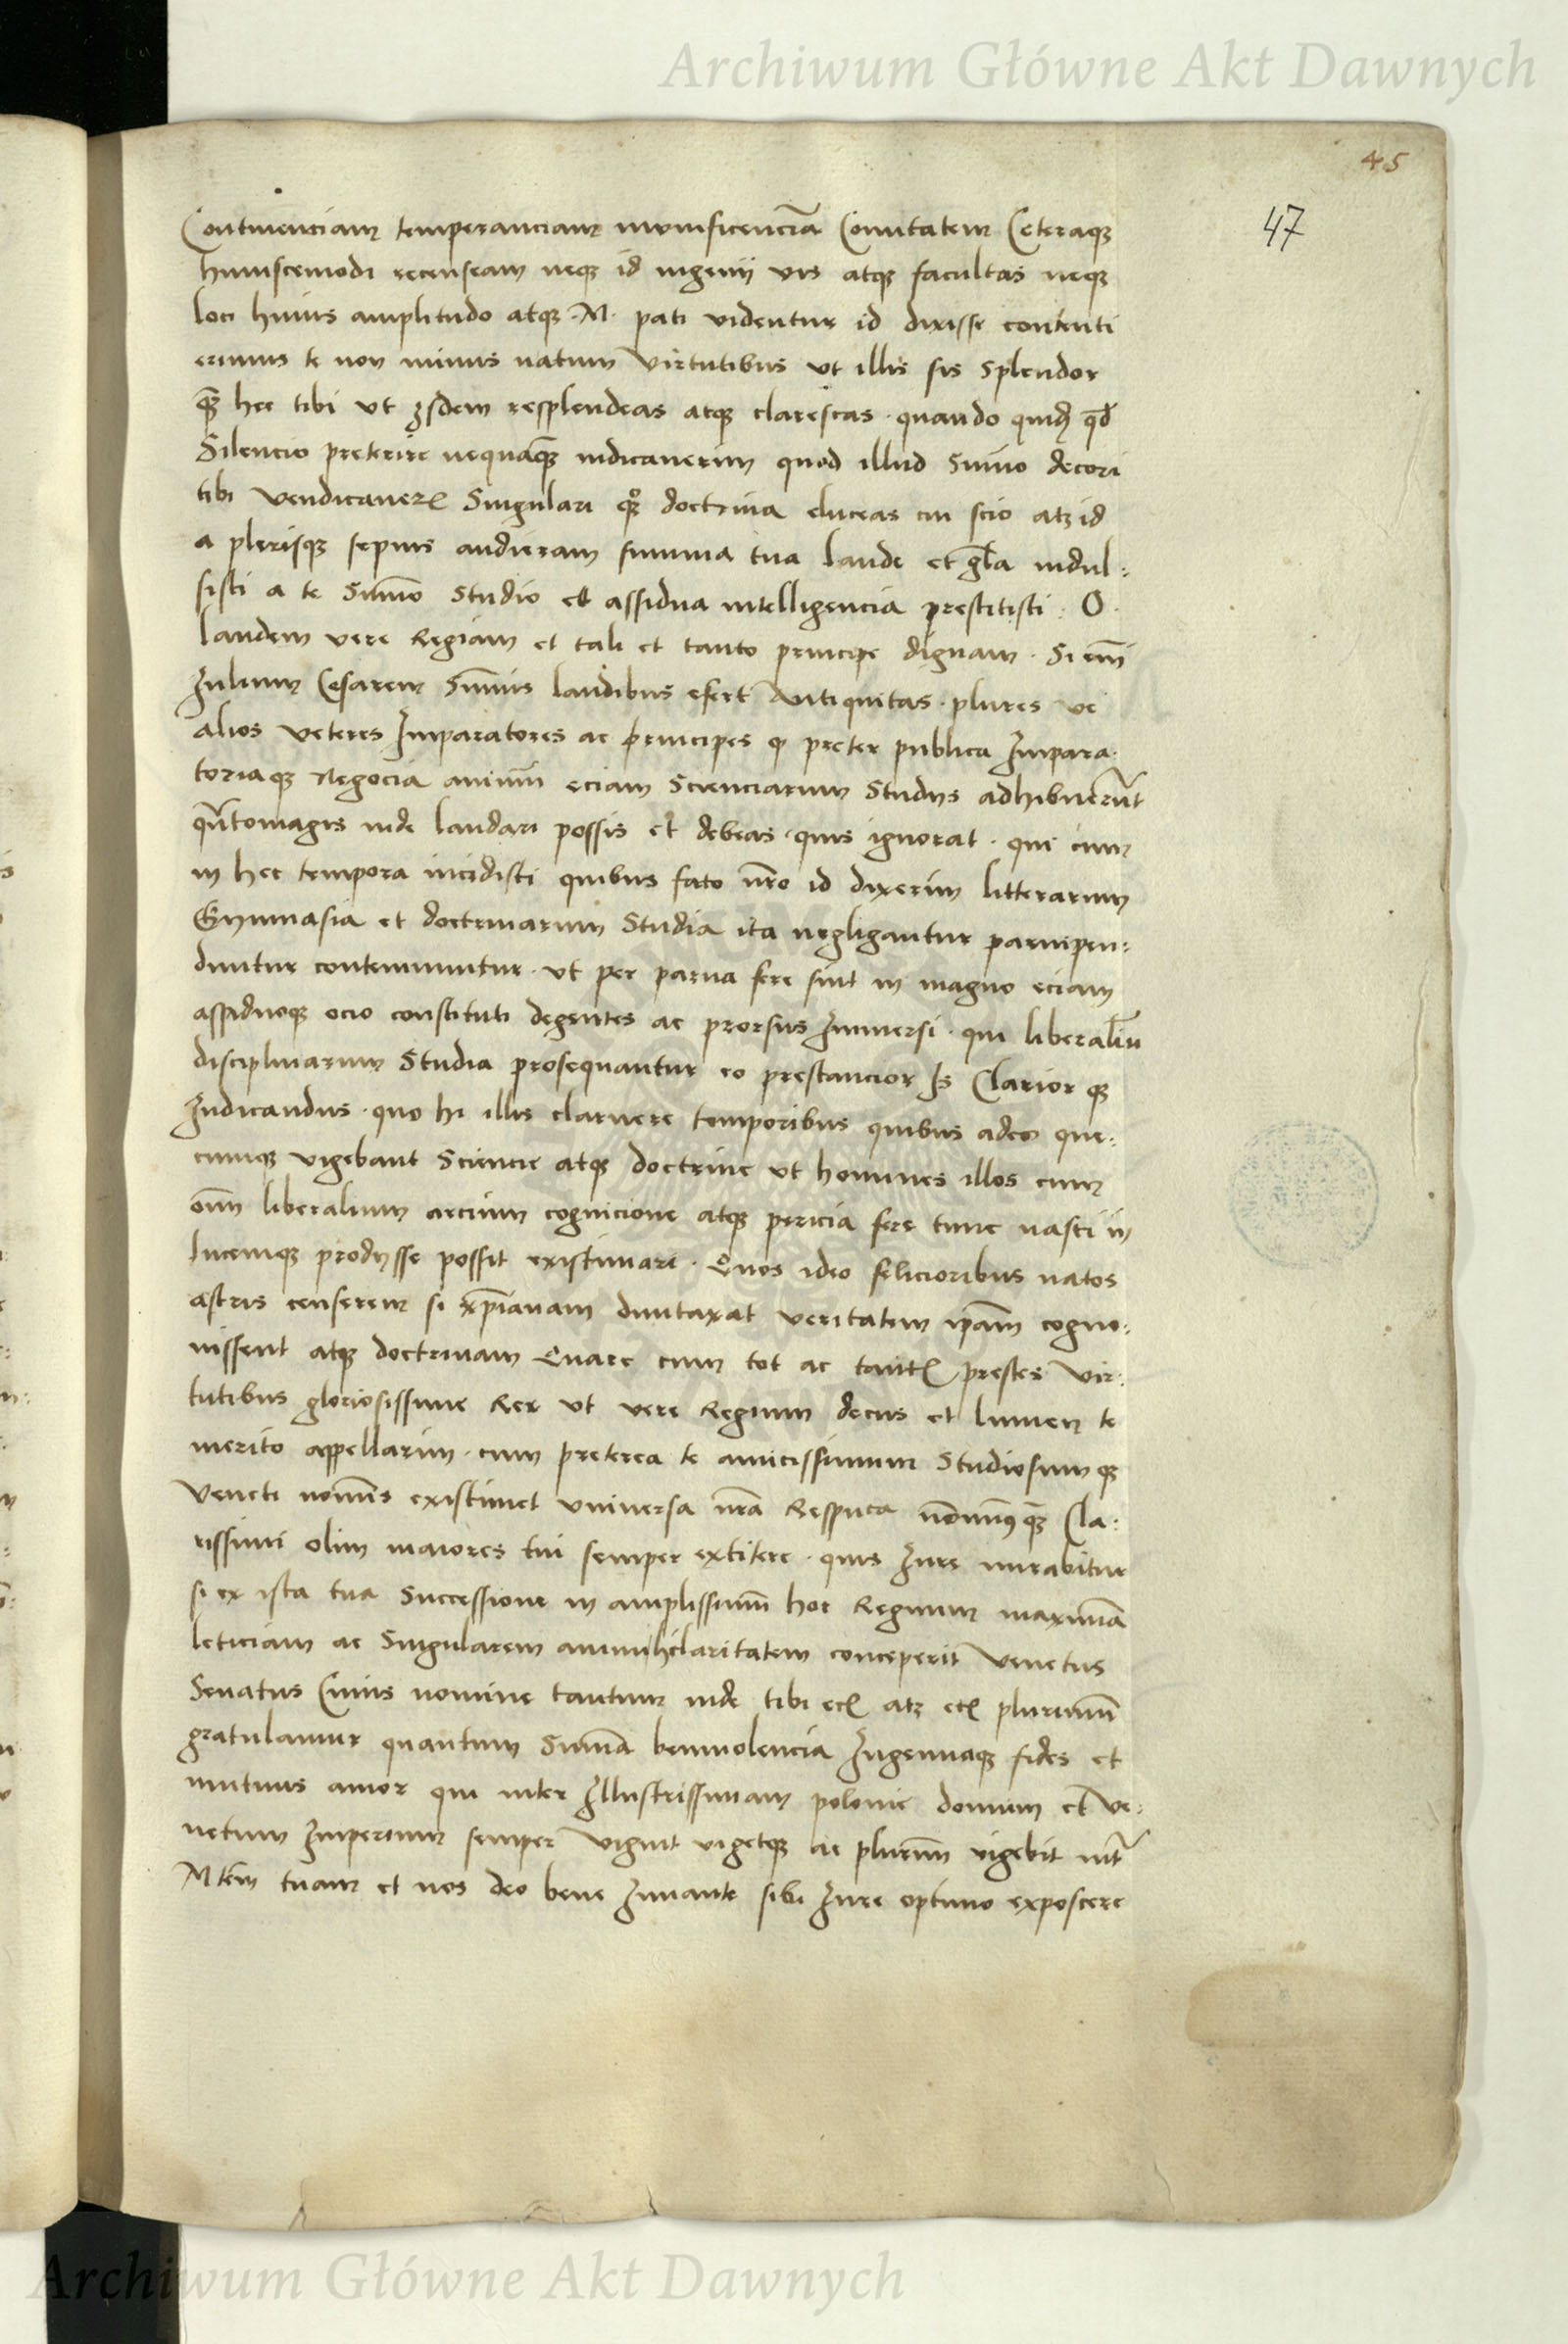 Archiwum Główne Akt Dawnych
45
47
Continenciam temperanciam munificenciã Comitatem Ceteraqꝫ
huiuscemodi recenseam neqꝫ id ingenij vis atqꝫ facultas neqꝫ
loci huius amplitudo atqꝫ M. pati videntur id dixisse contenti
erimus te non minus natum virtutibus vt illis sis splendor
q̃ꝫ hec tibi vt ijsdem resplendeas atqꝫ clarescas . quando
Silencio preterire nequaq̃ꝫ iudicauerim quod illud Sũmo decori
tibi vendicauer Singulari doctrina eluceas cui scio atꝫ id
a plerisqꝫ sepius audieram summa tua laude et gl̃a indul:
sisti a te Sũmo Studio et assidua intelligencia prestitisti . O
laudem vere Regiam et tali et tanto principe dignam . Si em̃
Iulium Cesarem Sũmis laudibus efert Antiquitas . plures ve
alios veteres Imparatores ac principes q preter publica Impara:
toriaqꝫ Negocia animũ eciam Scienciarum Studijs adhibuerũt
qũtomagis inde laudari possis et debeas . quis ignorat . qui cum
in hec tempora incidisti quibus fato nr̃o id dixerim litterarum
Gymnasia et doctrinarum Studia ita negligantur paruipen:
duntur contemnuntur . vt per parua fere sint in magno eciam
assiduoqꝫ ocio constituti degentes ac prorsus Immersi . qui liberaliũ
disciplinarum Studia prosequantur eo prestancior Clarior qꝫ
Iudicandus . quo hi illis claruere temporibus quibus adeo que:
cumqꝫ vigebant Sciencie atqꝫ doctrine vt homines illos cum
om̃ liberalium arcium cognicione atqꝫ pericia fere tunc nasci in
lucemqꝫ prodijsse possit existimari . Quos ideo felicioribus natos
astris censerem si xp̃ianam duntaxat veritatem ip̃am cogno:
uissent atqꝫ doctrinam Quare cum tot ac tantꝭ prestes vir:
tutibus gloriosissime Rex vt vere Regium decus et lumen te
merito appellarim . cum preterea te amicissimum Studiosumqꝫ
Veneti nominis existimet vniuersa nr̃a Respuca q̃ꝫ Cla:
rissimi olim maiores tui semper extitere . quis Iure mirabitur
si ex ista tua Successione in amplissimũ hoc Regnum maximã
leticiam ac Singularem animi hilaritatem conceperit Venetus
Senatus Cuius nomine tantum inde tibi ecꝭ atꝫ ecꝭ plurimũ
gratulamur quantum Sum̃a beniuolencia Ingenuaqꝫ fides et
mutuus amor qui inter Illustrissimam polonie domum et Ve:
netum Imperium semper viguit vigetqꝫ ac plurimũ vigebit int̃
Mtem̃ tuam et nos deo bene Iuuante sibi Iure optimo exposcere
Archiwum Główne Akt Dawnych